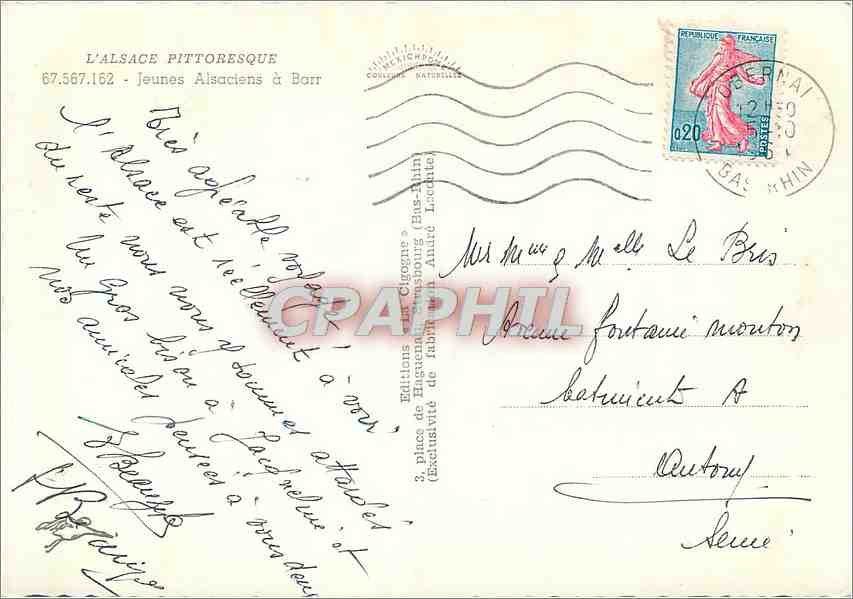 L'ALSACE PITTORESQUE
67.567.162 - Jeunes Alsaciens à Barr
MEXICHROME
COULEURS NATURELLES
REPUBLIQUE FRANÇAISE
0,20
POSTES
OBERNAI
12H30
BAS-RHIN
Très agréable voyage !
l'Alsace est réellement à voir
du reste nous nous y sommes attardés
Un gros bison à Jacqueline et
nos amicales pensées à vous deux
Editions « La Cigogne »
3, place de Haguenau, Strasbourg (Bas-Rhin)
(Exclusivité de fabrication André Leconte)
CPAPHIL
Mr Mme & Melle Le Bris
Avenue fontaine mouton
batiment A
Antony
Seine